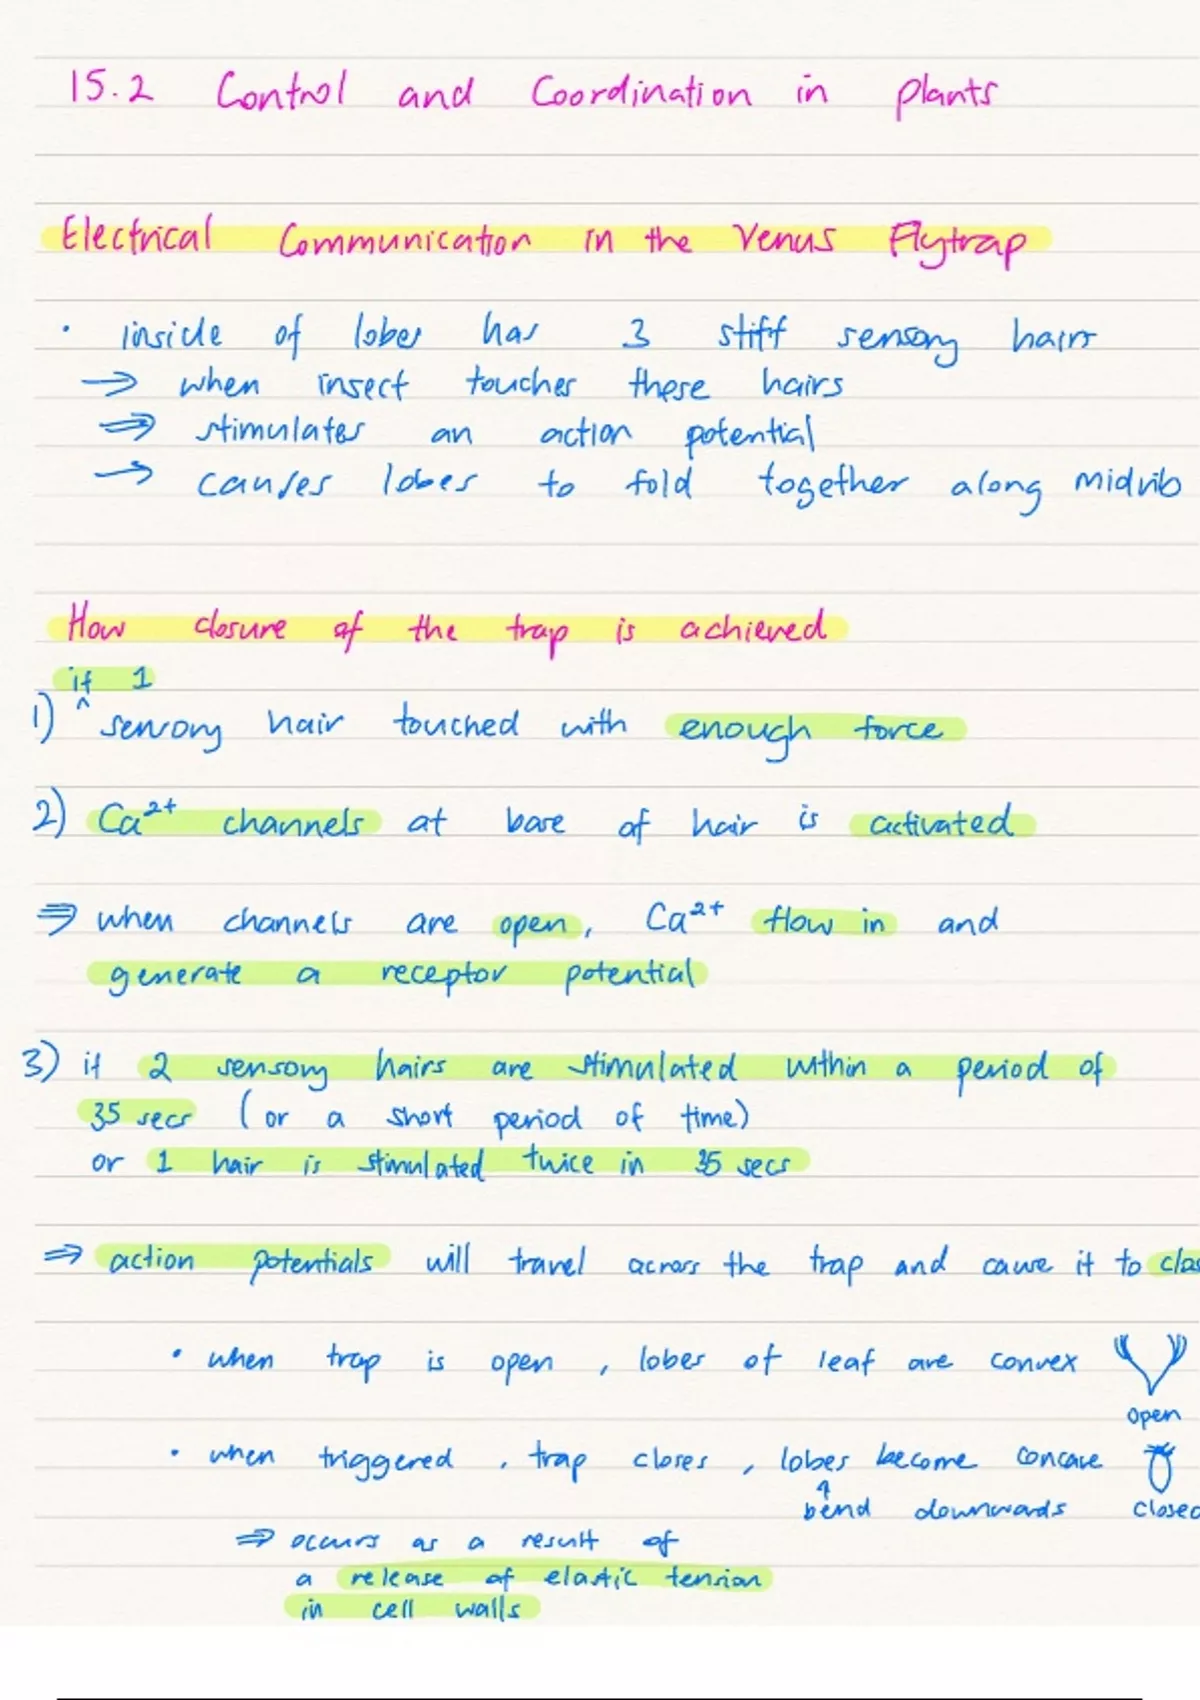 15.2 Control and Coordination in plants
Electrical Communication in the Venus Flytrap
• inside of lobes has 3 stiff sensory hairs
→ when insect touches these hairs
⇒ stimulates an action potential
→ causes lobes to fold together along midrib
How closure of the trap is achieved
if 1
1) ^ sensory hair touched with enough force
2) Ca²⁺ channels at base of hair is activated
⇒ when channels are open, Ca²⁺ flow in and
generate a receptor potential
3) if 2 sensory hairs are stimulated within a period of
35 secs (or a short period of time)
or 1 hair is stimulated twice in 35 secs
⇒ action potentials will travel across the trap and cause it to clos
• when trap is open, lobes of leaf are convex
open
• when triggered, trap closes, lobes become concave
bend downwards closed
⇒ occurs as a result of
a release of elastic tension
in cell walls